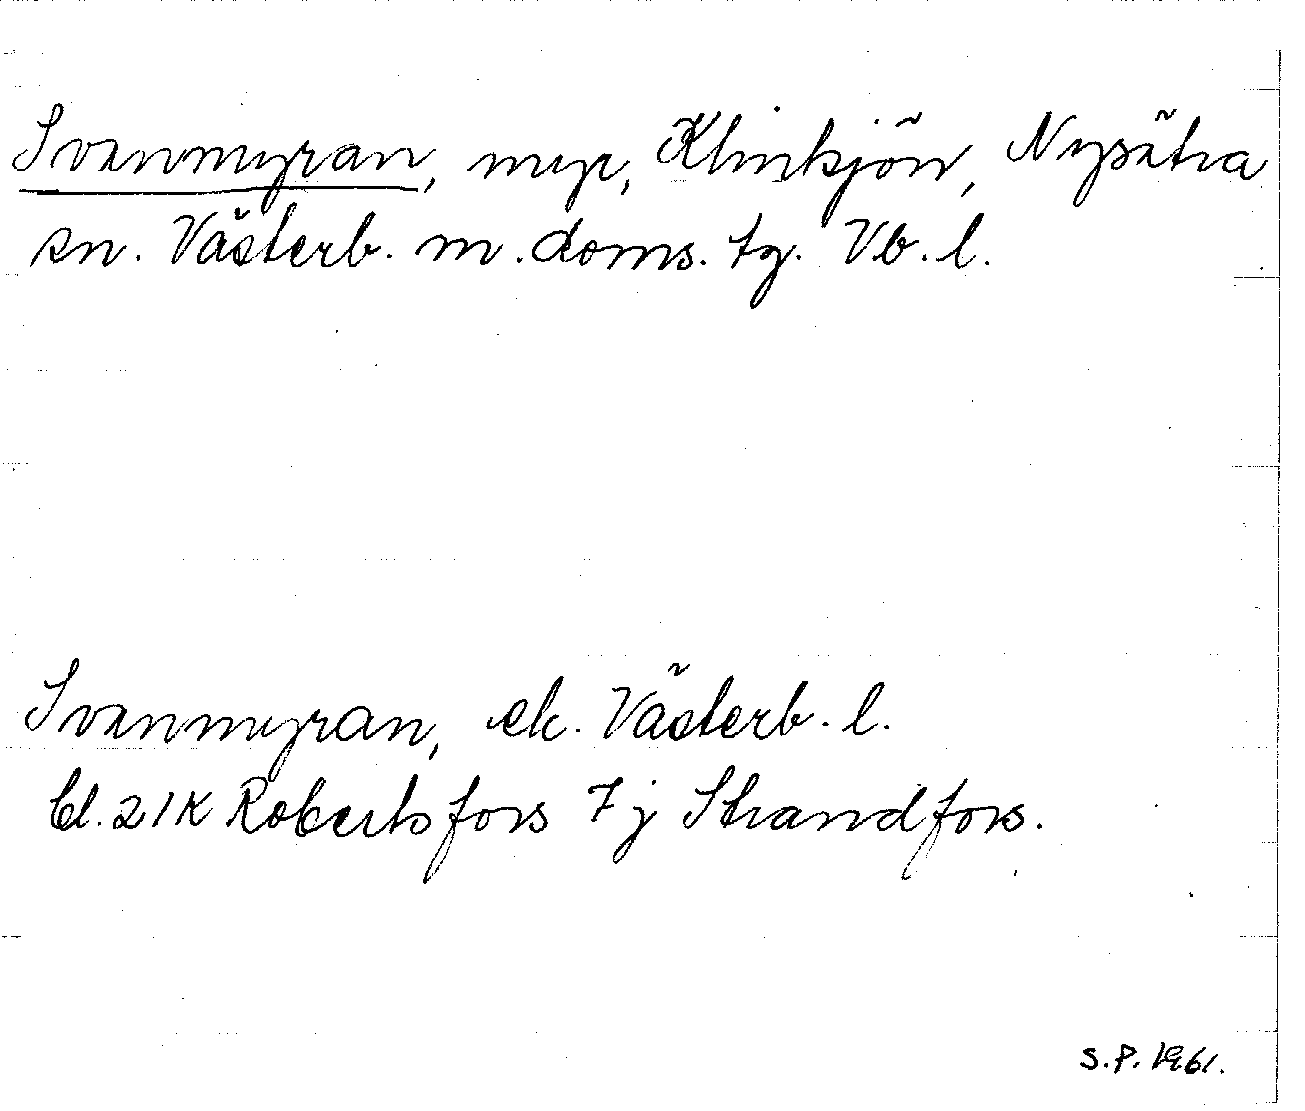 Svanmyran, myr, Klinksjön, Nysätra
sn. Västerb. m. doms. tg. Vb. l.
Svanmyran, ek. Västerb. l.
bl. 21K Robertsfors 7 j Strandfors.
S.P. 1961.